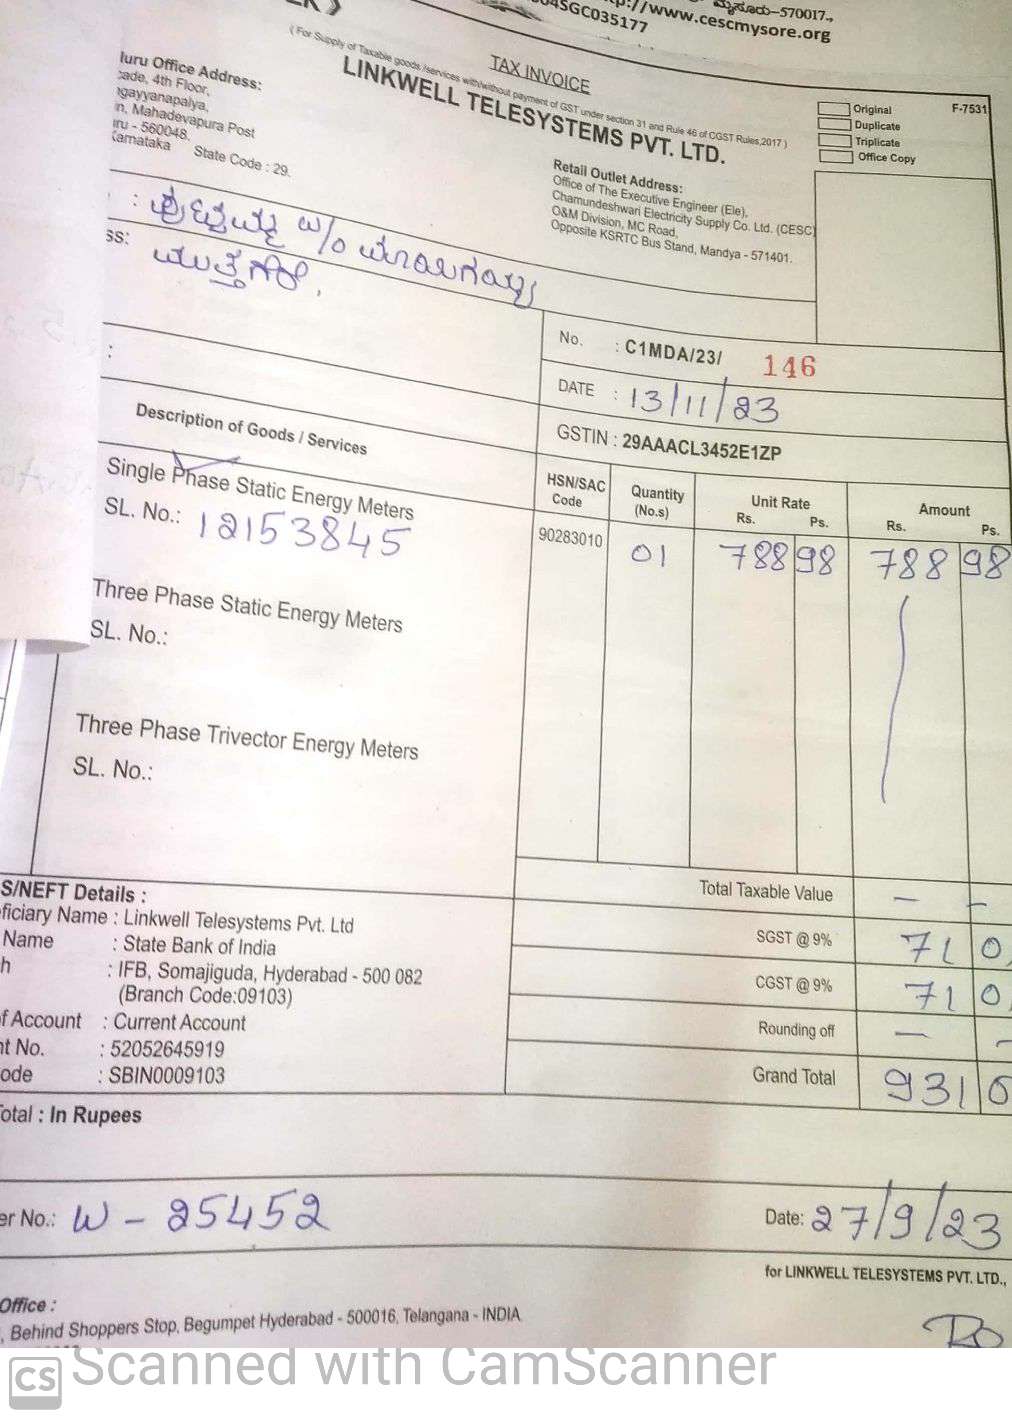 http://www.cescmysore.org
ಮೈಸೂರು–570017.,
04SGC035177
TAX INVOICE
( For Supply of Taxable goods /services with/without payment of GST under section 31 and Rule 46 of CGST Rules,2017 )
LINKWELL TELESYSTEMS PVT. LTD.
Original F-7531
Duplicate
Triplicate
Office Copy
luru Office Address:
4th Floor,
n, Mahadevapura Post
- 560048.
State Code : 29.
Retail Outlet Address:
Office of The Executive Engineer (Ele),
Chamundeshwari Electricity Supply Co. Ltd. (CESC)
O&M Division, MC Road,
Opposite KSRTC Bus Stand, Mandya - 571401.
: W/o
ss:
:
No. : C1MDA/23/ 146
DATE : 13/11/23
GSTIN : 29AAACL3452E1ZP
Description of Goods / Services
HSN/SAC Code Quantity (No.s) Unit Rate Rs. Ps. Amount Rs. Ps.
Single Phase Static Energy Meters
SL. No.: 12153845
90283010 01 788 98 788 98
Three Phase Static Energy Meters
SL. No.:
Three Phase Trivector Energy Meters
SL. No.:
Total Taxable Value — -
SGST @ 9% 71 0
CGST @ 9% 71 0
Rounding off — -
Grand Total 931 0
S/NEFT Details :
ficiary Name : Linkwell Telesystems Pvt. Ltd
Name : State Bank of India
h : IFB, Somajiguda, Hyderabad - 500 082
(Branch Code:09103)
f Account : Current Account
nt No. : 52052645919
ode : SBIN0009103
otal : In Rupees
er No.: W - 25452
Date: 27/9/23
for LINKWELL TELESYSTEMS PVT. LTD.,
Office :
, Behind Shoppers Stop, Begumpet Hyderabad - 500016, Telangana - INDIA
CS Scanned with CamScanner